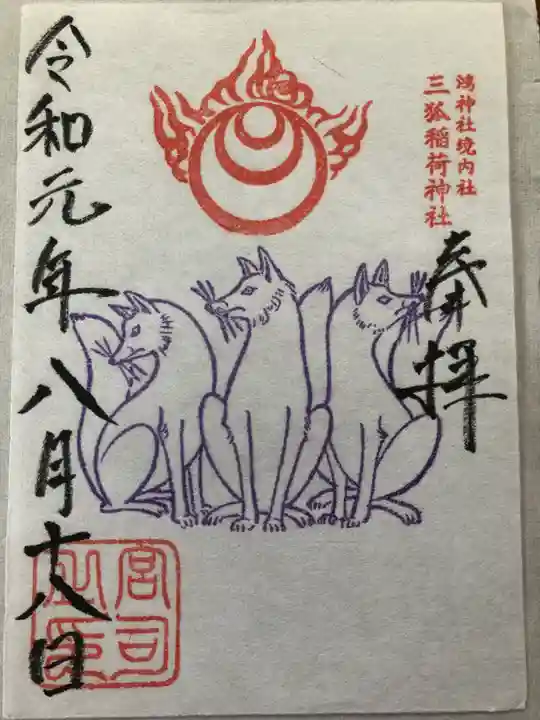 鴻神社境内社
三狐稲荷神社
奉拝
令和元年八月十八日
宮司
之印